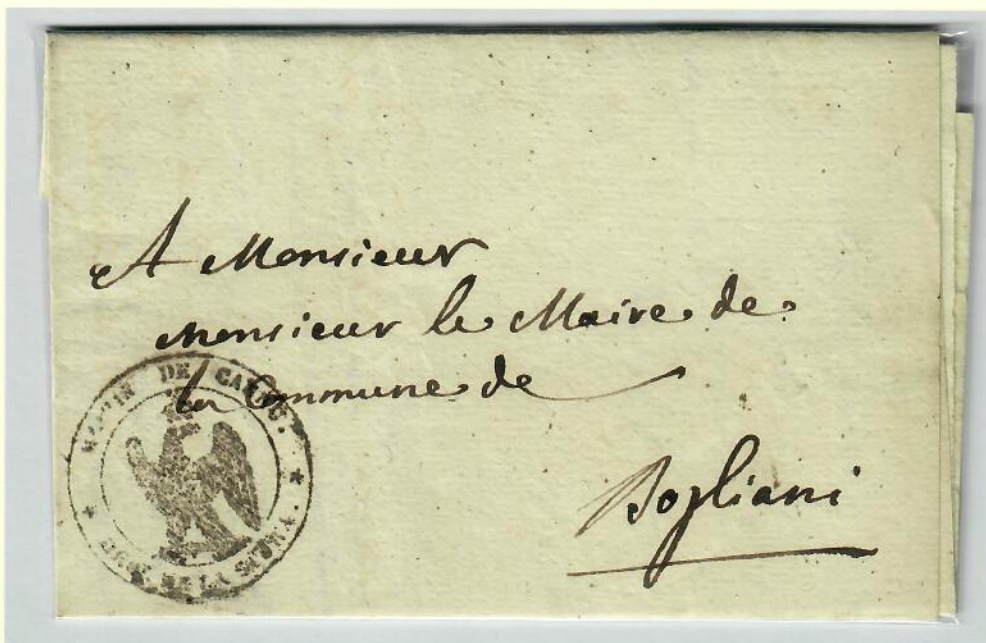 A Monsieur
Monsieur le Maire de
la Commune de
Dogliani
DE CARRU.
DE LA STURA.